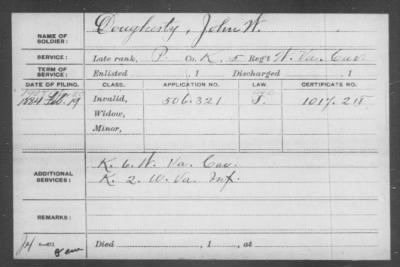 NAME OF SOLDIER: Dougherty, John W.
SERVICE: Late rank, P Co. K, 5 Reg't W. Va. Cav.
TERM OF SERVICE: Enlisted , 1 Discharged , 1
DATE OF FILING. CLASS. APPLICATION NO. LAW. CERTIFICATE NO.
1884 Feb. 19 Invalid, 506.321 1017.218
Widow,
Minor,
ADDITIONAL SERVICES: K. 6 W. Va. Cav.
K. 2. W. Va. Inf.
REMARKS:
Died , 1 , at